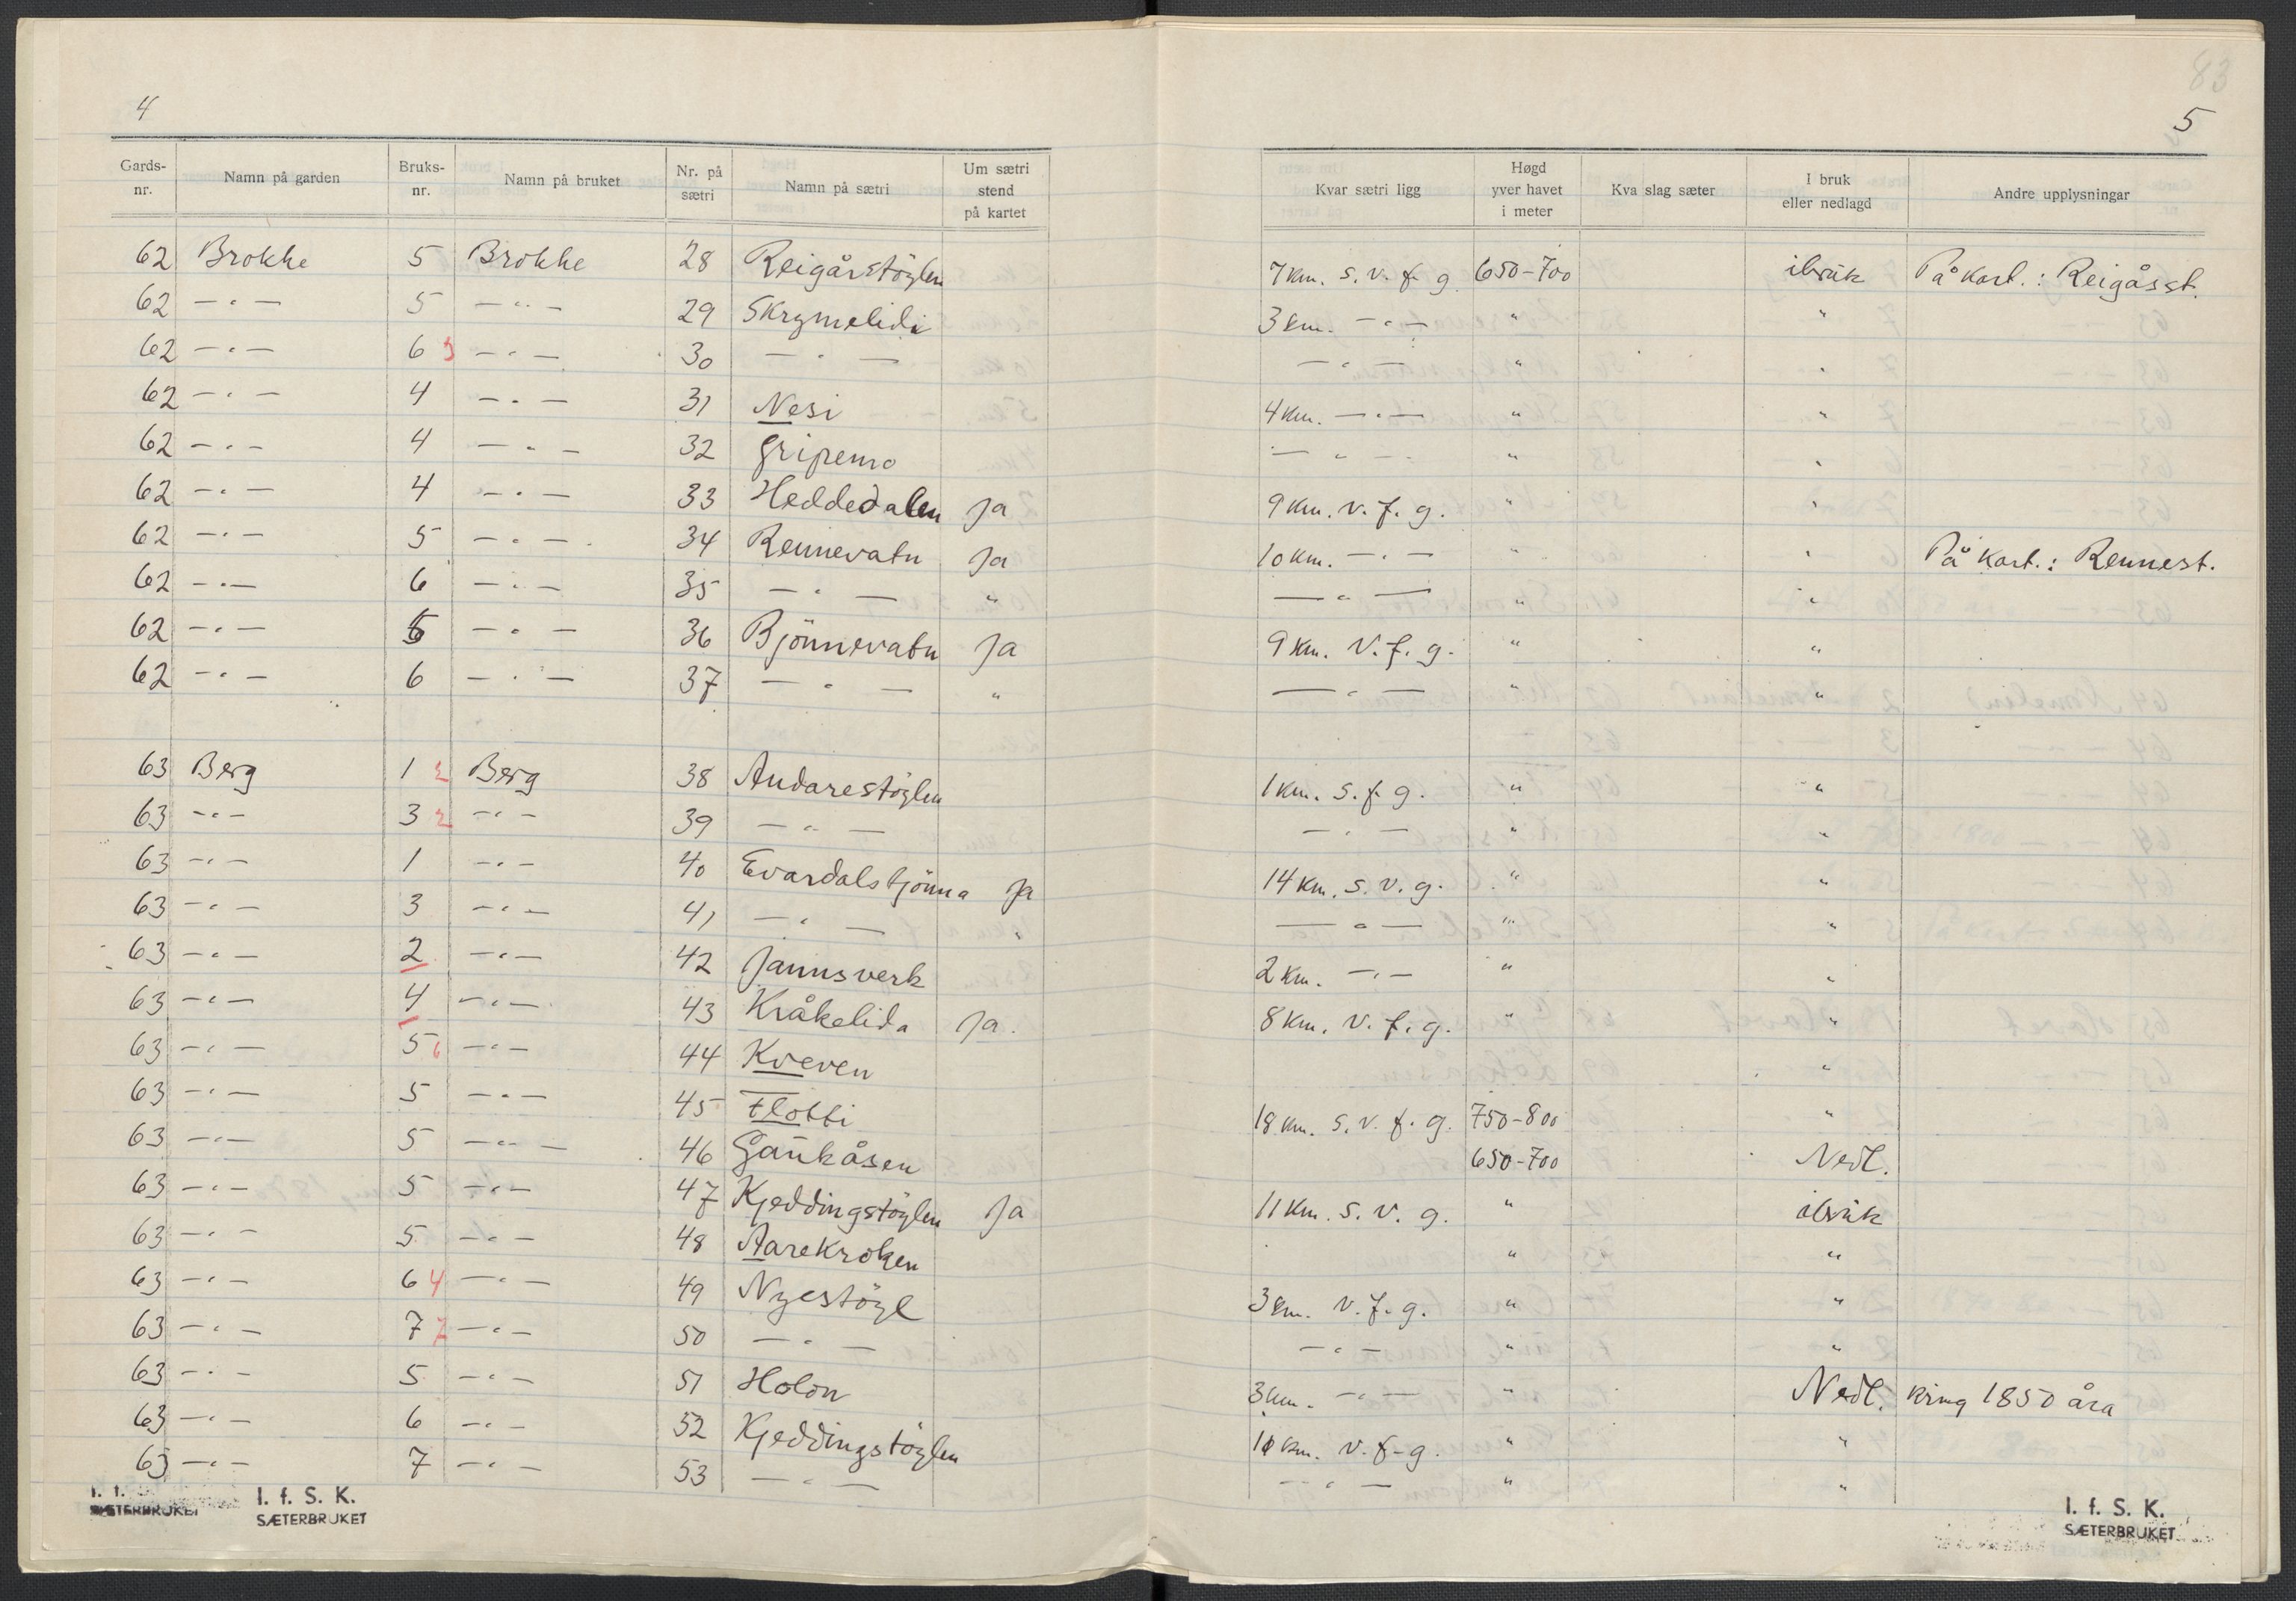 4
Gards-nr. Namn på garden Bruks-nr. Namn på bruket Nr. på sætri Namn på sætri Um sætri stend på kartet
62 Brokke 5 Brokke 28 Reigårstöylen
62 -"- 5 -"- 29 Skrymelidi
62 -"- 6 3 -"- 30 -"-
62 -"- 4 -"- 31 Nesi
62 -"- 4 -"- 32 Gripemo
62 -"- 4 -"- 33 Heddedalen Ja
62 -"- 5 -"- 34 Rennevatn Ja
62 -"- 6 -"- 35 -"- "
62 -"- 5 -"- 36 Bjönnevatn Ja
62 -"- 6 -"- 37 -"- "
63 Berg 1 2 Berg 38 Andarestöylen
63 -"- 3 2 -"- 39 -"-
63 -"- 1 -"- 40 Evardalstjönna Ja
63 -"- 3 -"- 41 -"- "
63 -"- 2 -"- 42 Jannsverk
63 -"- 4 -"- 43 Kråkelida Ja.
63 -"- 5 6 -"- 44 Kveven
63 -"- 5 -"- 45 Flotti
63 -"- 5 -"- 46 Gaukåsen
63 -"- 5 -"- 47 Kjeddingstöylen Ja
63 -"- 5 -"- 48 Aarekroken
63 -"- 6 4 -"- 49 Nyestöyl
63 -"- 7 7 -"- 50 -"-
63 -"- 5 -"- 51 Holon
63 -"- 6 -"- 52 Kjeddingstöylen
63 -"- 7 -"- 53 -"-
I. f. S. K.
SÆTERBRUKET
I. f. S. K.
SÆTERBRUKET
83
5
Kvar sætri ligg Høgd yver havet i meter Kva slag sæter I bruk eller nedlagd Andre upplysningar
7 km. s. v. f. g. 650-700 ibruk På kart.: Reigåsst.
3 km. -"- " "
-"- " "
4 km. -"- " "
-"- " "
9 km. v. f. g. " "
10 km. -"- " " På kart.: Rennest.
-"- " "
9 km. v. f. g. " "
-"- " "
1 km. s. f. g. " "
-"- " "
14 km. s. v. g. " "
-"- " "
2 km. -"- " "
8 km. v. f. g. " "
"
18 km. s. v. f. g. 750-800 "
650-700 Nedl.
11 km. s. v. g. " ibruk
" "
3 km. v. f. g. " "
-"- " "
3 km. -"- " Nedl. kring 1850 åra
10 km. v. f. g. " "
-"- " "
I. f. S. K.
SÆTERBRUKET